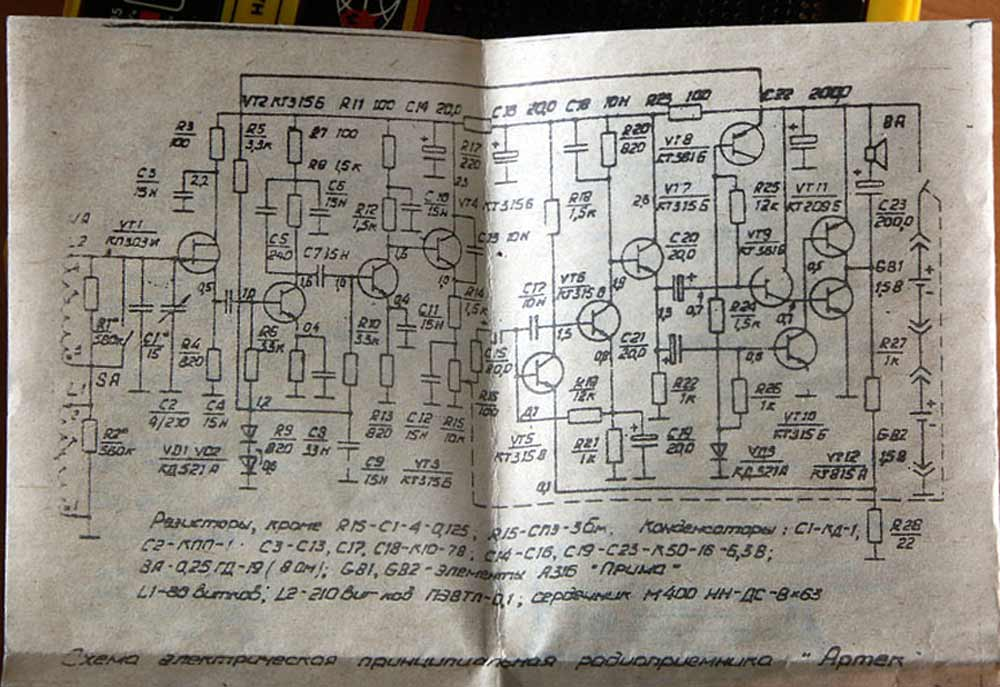 VT2 КТ315Б R11 100 C14 20,0 C16 20,0 C18 10Н R23 100 C22 200,0
R3 100
R5 3,3К
R7 100
R8 1,5К
R17 220
R20 820
VT8 КТ361Б
ВА
C3 15Н
2,2
C6 15Н
R12 1,5К
C10 15Н
VT4 КТ315Б
R18 1,5К
2,8
VT7 КТ315Б
R25 12К
VT11 КТ209Б
C23 200,0
WA
L2
VT1 КП303И
C5 240
C7 15Н
1,5
C13 10Н
C20 20,0
VT9 КТ361Б
GB1
1,5В
0,5
1,0
1,6
1,0
1,0
C17 10Н
VT6 КТ315В
1,9
1,3
0,7
0,5
0,7
R1* 560К
C1* 15
R4 820
R6 33К
0,4
R10 33К
0,4
C11 15Н
R14 1,5К
C15 20,0
1,5
0,8
C21 20,0
R24 1,5К
0,6
R27 1К
SA
L1
R16 100
R19 12К
R22 1К
R26 1К
C2 9/270
C4 15Н
1,2
R13 820
C12 15Н
R15 10К
VT5 КТ315В
R21 1К
C19 20,0
VT10 КТ315Б
GB2
R2* 560К
VD1 VD2 КД521А
R9 820
C8 33Н
0,6
C9 15Н
VT3 КТ315Б
VD3 КД521А
VT12 КТ815А
1,5В
0,1
R28 22
Резисторы, кроме R15-С1-4-0,125, R15-СП3-3бм. Конденсаторы: С1-КД-1,
С2-КПП-1. С3-С13, С17, С18-К10-7В, С14-С16, С19-С23-К50-16-6,3В;
ВА-0,25ГД-19 (8 Ом); GB1, GB2-Элементы А316 "Прима"
L1-80 витков; L2-210 витков ПЭВТЛ-0,1; сердечник М400 НН-ДС-8х63
Схема электрическая принципиальная радиоприемника "Артек"